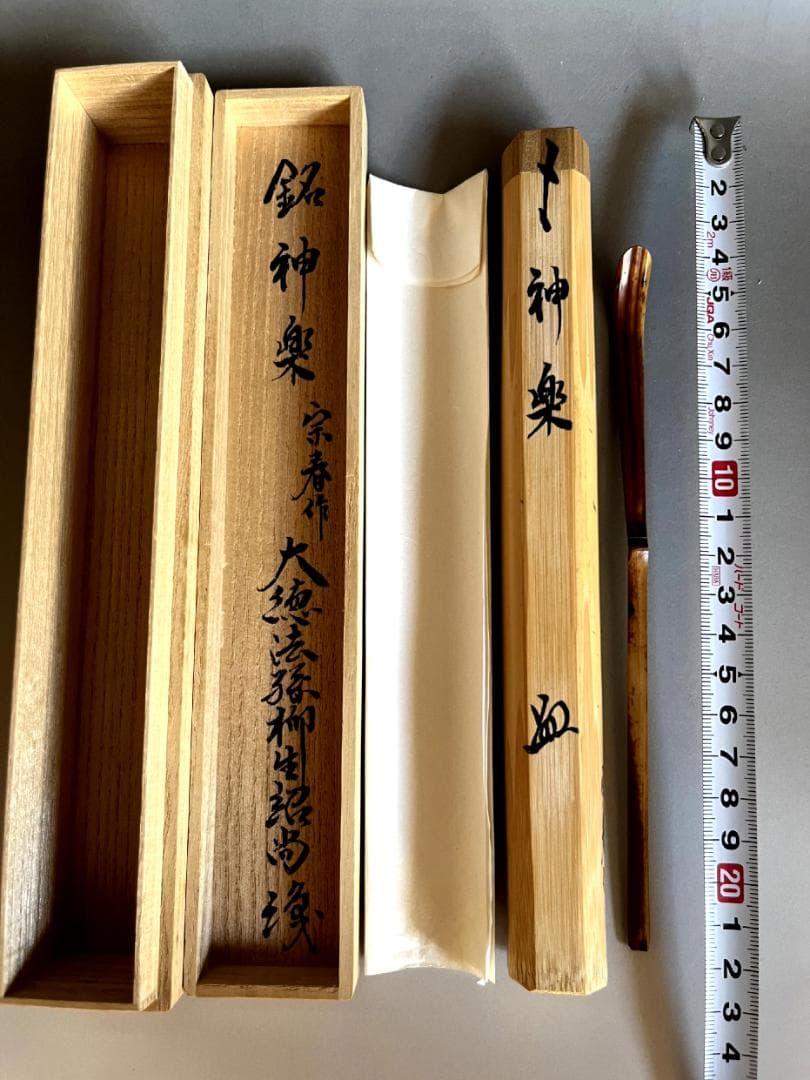 銘 神楽
宗春作
大徳法孫柳生紹尚
神楽
2 3 4 5 6 7 8 9 10 1 2 3 4 5 6 7 8 9 20 1 2 3 4
2m
級
JQA
ハード コート